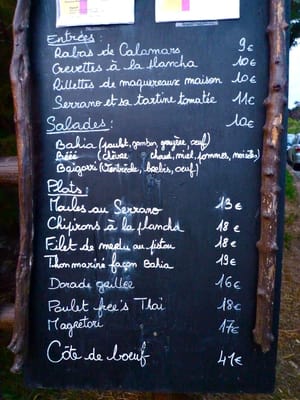 Entrées:
Rabas de Calamars 9€
Crevettes à la plancha 10€
Rillettes de maquereaux maison 10€
Serrano et sa tartine tomatée 11€
Salades: 10€
Bahia (poulet, jambon, gruyère, œuf)
Béée (chèvre chaud, miel, pommes, noisettes)
Baigorri (Ventrèche, brebis, oeuf)
Plats:
Moules au Serrano 13€
Chipirons à la plancha 18€
Filet de merlu au pistou 18€
Thon mariné façon Bahia 19€
Dorade grillée 16€
Poulet free's Thaï 18€
Magret 17€
Côte de boeuf 41€